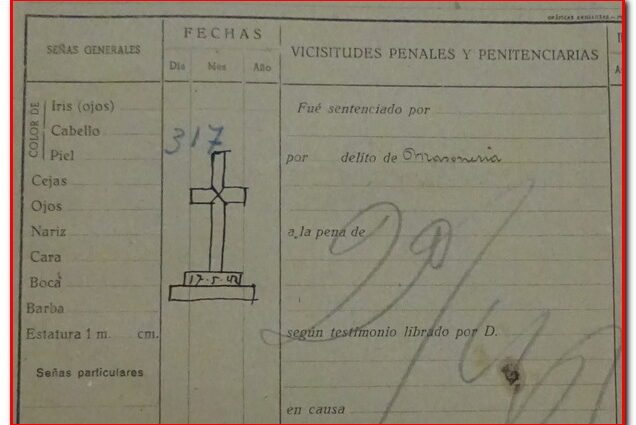 GRÁFICAS REUNIDAS.—M
SEÑAS GENERALES
FECHAS
Día Mes Año
VICISITUDES PENALES Y PENITENCIARIAS
COLOR DE
Iris (ojos)
Cabello
Piel
Cejas
Ojos
Nariz
Cara
Boca
Barba
Estatura 1 m. cm.
Señas particulares
317
17-5-42
Fué sentenciado por
por delito de Masonería
a la pena de
según testimonio librado por D.
en causa